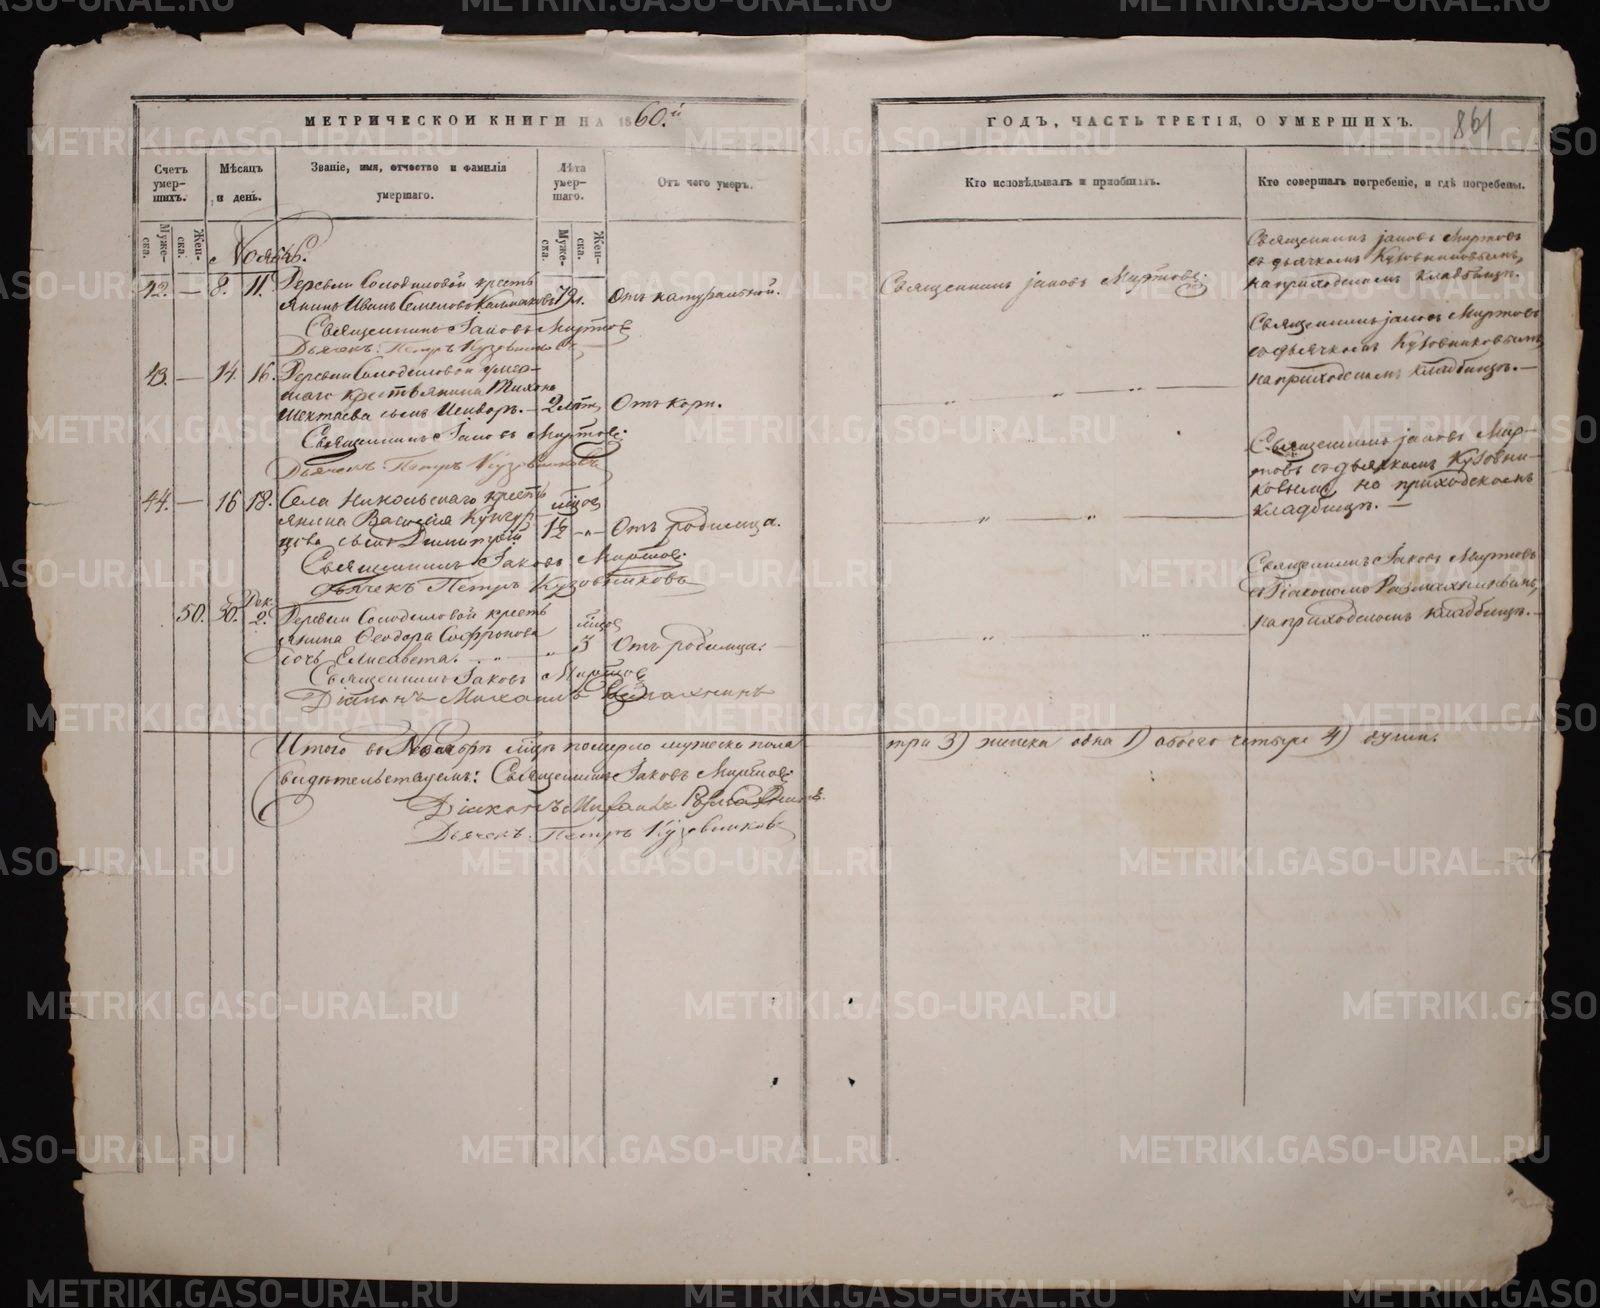 МЕТРИЧЕСКОЙ КНИГИ НА 1860.й
ГОДЪ, ЧАСТЬ ТРЕТІЯ, О УМЕРШИХЪ.
861
Счетъ умер-шихъ.
Мѣсяцъ и день.
Званіе, имя, отчество и фамилія умершаго.
Лѣта умер-шаго.
Отъ чего умеръ.
Кто исповѣдывалъ и пріобщалъ.
Кто совершалъ погребеніе, и гдѣ погребены.
Муже-ска.
Жен-ска.
Муже-ска.
Жен-ска.
Ноябрь.
42. — 8. 11. Деревни Солодиловой кресть
янинъ Иванъ Семеновъ 72л. Отъ натуральной.
Священникъ Іаковъ Миртовъ
Дьячекъ Петръ Кузовниковъ
Священникъ Іаковъ Миртовъ.
Священникъ Іаковъ Миртовъ
съ дьячкомъ Кузовниковымъ,
на приходскомъ кладбищѣ.
43. — 14. 16. Деревни Солодиловой умер-
шаго крестьянина Тихона
сынъ 2 лѣтъ Отъ кори.
Священникъ Іаковъ Миртовъ.
Дьячекъ Петръ Кузовниковъ
Священникъ Іаковъ Миртовъ
съ дьячкомъ Кузовниковымъ
на приходскомъ кладбищѣ. —
44. — 16 18. Села Никольскаго кресть
янина Василія
сынъ Димитрій 1½ Отъ родимца.
Священникъ Іаковъ Миртовъ.
Дьячекъ Петръ Кузовниковъ
Священникъ Іаковъ Мир-
товъ съ дьячкомъ Кузовни-
ковымъ, на приходскомъ
кладбищѣ. —
50. 30. Дек. 2. Деревни Солодиловой кресть
янина Ѳеодора Софронова
дочь Елисавета. 3 Отъ родимца.
Священникъ Іаковъ Миртовъ
Діаконъ Михаилъ
Священникъ Іаковъ Миртовъ
на приходскомъ кладбищѣ. —
Итого въ Ноябрѣ мцѣ померло мужеска пола
три 3) женска одна 1) обоего четыре 4) души.
Свидѣтельствуемъ: Священникъ Іаковъ Миртовъ
Діаконъ Михаилъ
Дьячекъ Петръ Кузовниковъ
METRIKI.GASO-URAL.RU